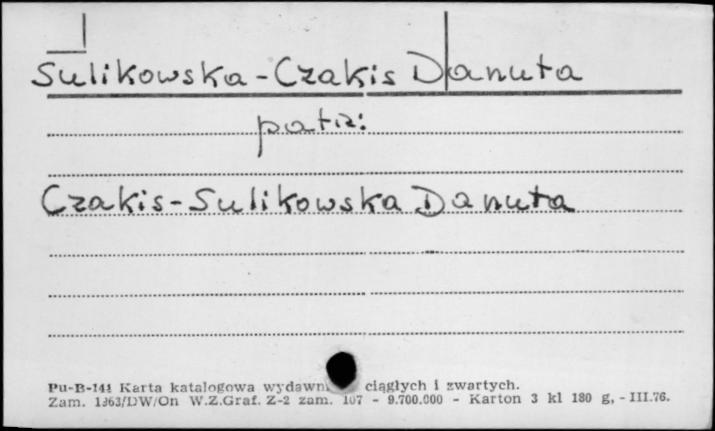 Sulikowska-Czakis Danuta
patrz:
Czakis-Sulikowska Danuta
Pu-B-141 Karta katalogowa ciągłych i zwartych.
Zam. 1363/DW/On W.Z.Graf. Z-2 zam. 107 - 9.700.000 - Karton 3 kl 180 g, - III.76.